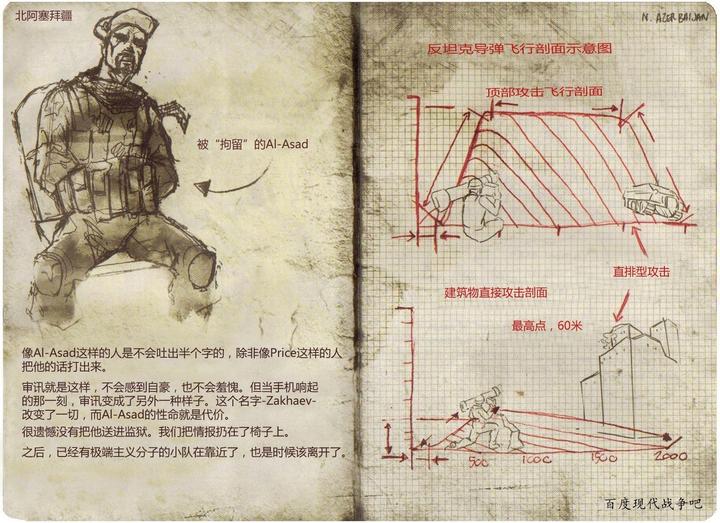 北阿塞拜疆
被“拘留”的Al-Asad
像Al-Asad这样的人是不会吐出半个字的，除非像Price这样的人
把他的话打出来。
审讯就是这样，不会感到自豪，也不会羞愧。但当手机响起
的那一刻，审讯变成了另外一种样子。这个名字-Zakhaev-
改变了一切，而Al-Asad的性命就是代价。
很遗憾没有把他送进监狱。我们把情报扔在了椅子上。
之后，已经有极端主义分子的小队在靠近了，也是时候该离开了。
N. AZERBAIJAN
反坦克导弹飞行剖面示意图
顶部攻击飞行剖面
直排型攻击
建筑物直接攻击剖面
最高点，60米
500 1000 1500 2000
百度现代战争吧